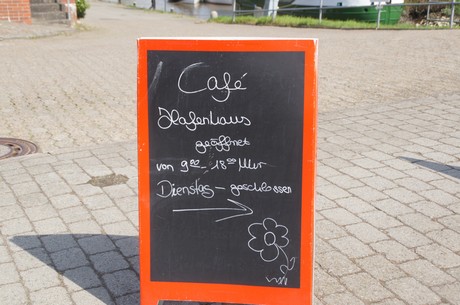 Café
Hafenhaus
geöffnet
von 9⁰⁰ - 18⁰⁰ Uhr
Dienstag - geschlossen